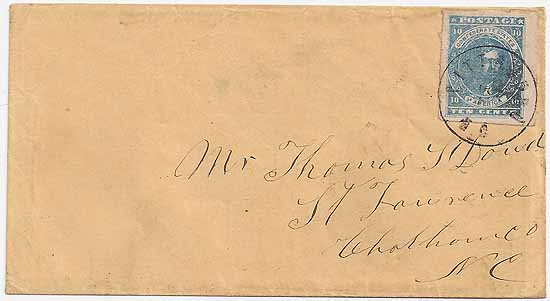 POSTAGE
10 10
CONFEDERATE STATES
OF AMERICA
10 10
TEN CENTS
Mr Thomas S Dowd
St Lawrence
Chatham Co
N C